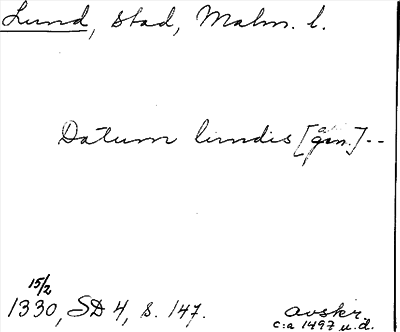 Lund, stad, Malm. l.
Datum lundis [gen.]--
15/2
1330, SD 4, s. 147.
avskr.
c:a 1497 u.d.